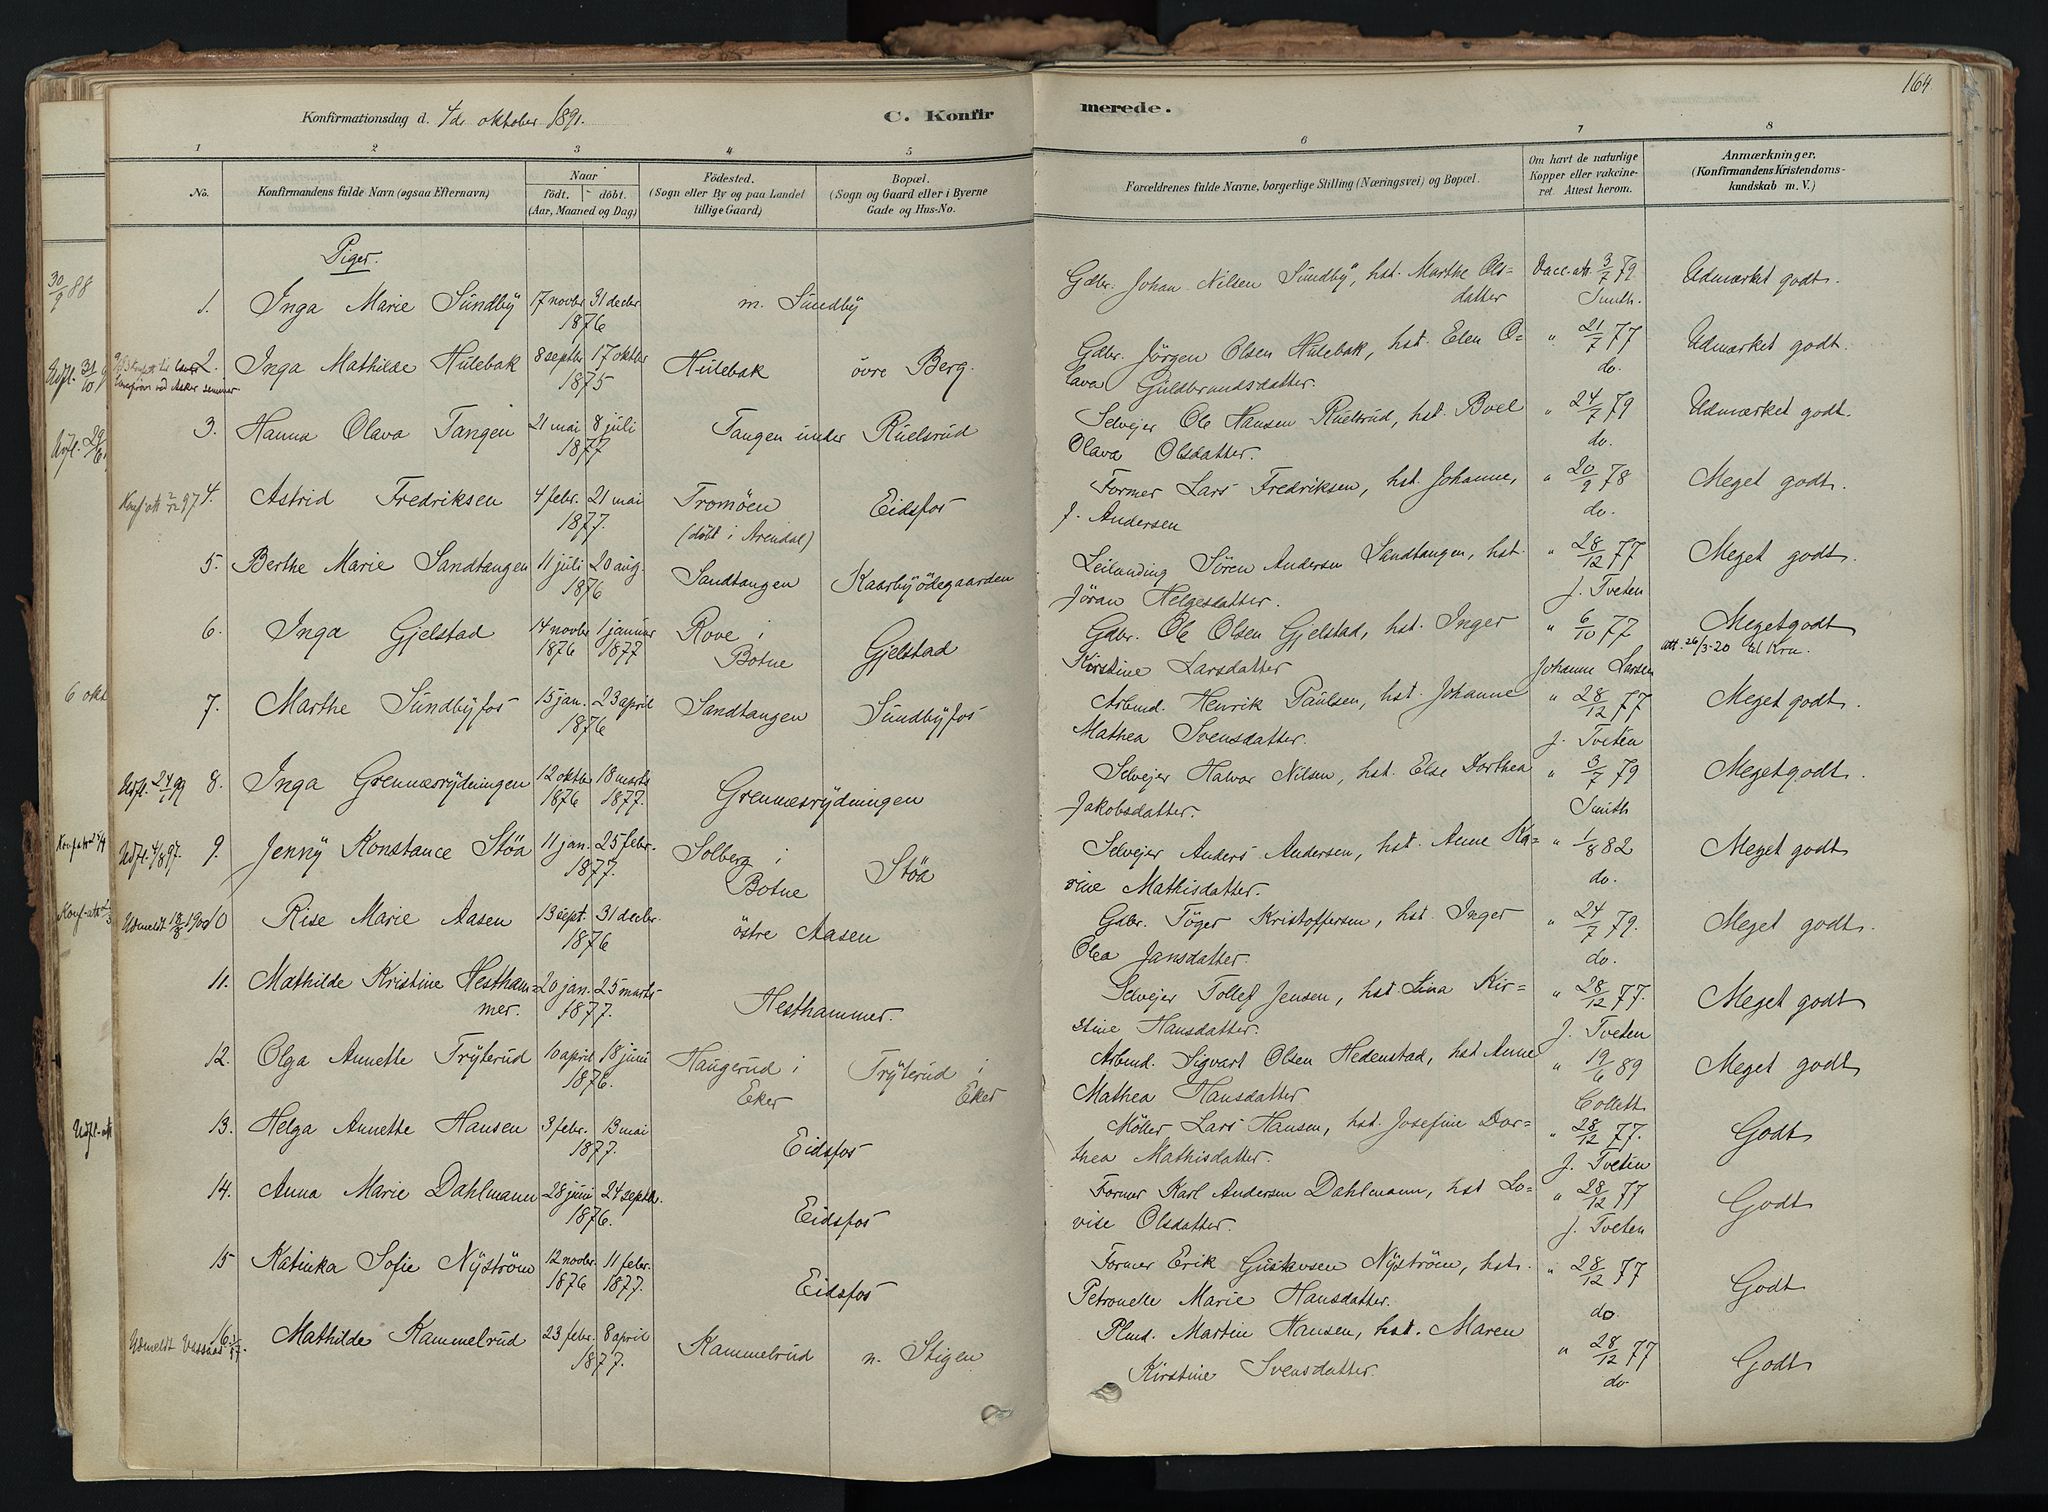 164
Konfirmationsdag d. 4de oktober 1891.
C. Konfirmerede.
1 2 3 4 5 6 7 8
No.
Konfirmandens fulde Navn (ogsaa Efternavn)
Naar
født. døbt.
(Aar, Maaned og Dag)
Fødested.
(Sogn eller By og paa Landet
tillige Gaard)
Bopæl.
(Sogn og Gaard eller i Byerne
Gade og Hus-No.
Forældrenes fulde Navne, borgerlige Stilling (Næringsvei) og Bopæl.
Om havt de naturlige
Kopper eller vakcine-
ret. Attest herom.
Anmærkninger.
(Konfirmandens Kristendoms-
kundskab m. V.)
Piger.
30/9 88
1. Inga Marie Sundby 17 novbr 31 decbr 1876 m. Sundby
Gdbr. Johan Nilsen Sundby, hst. Marthe Ols-
datter
Vacc. att. 3/7 79. Smith.
Udmærket godt.
2. Inga Mathilde Hulebak 8 septbr 17 oktbr 1875 Hulebak øvre Berg.
Gdbr. Jörgen Olsen Hulebak, hst. Elen O-
lava Guldbrandsdatter.
" 21/7 77 do.
Udmærket godt.
3. Hanna Olava Tangen 21 mai 8 juli 1877 Tangen under Ruelsrud
Selvejer Ole Hansen Ruelsrud, hst. Boel
Olava Olsdatter.
" 24/7 79 do.
Udmærket godt.
Konf. att 2/12 97
4. Astrid Fredriksen 4 febr. 21 mai 1877. Tromøen (døbt i Arendal) Eidsfos
Former Lars Fredriksen, hst. Johanne,
J. Andersen
" 20/9 78 do.
Meget godt.
5. Berthe Marie Sandtangen 11 juli 20 aug. 1876 Sandtangen Kaarbyødegaarden
Leilænding Sören Andersen Sandtangen, hst.
Jöran Helgesdatter.
" 28/12 77 J. Tveten
Meget godt.
6. Inga Gjelstad 14 novbr 1876 1 januar 1877 Rove i Botne Gjelstad
Gdbr. Ole Olsen Gjelstad, hst. Inger
Kirstine Larsdatter
" 6/10 77 Johanne Larsen
Meget godt
att. 26/3-20 til Krn.
6 okt
7. Marthe Sundbyfos 15 jan. 23 april 1876 Sandtangen Sundbyfos
Arbmd. Henrik Paulsen, hst. Johanne
Mathea Svensdatter.
" 28/12 77 J. Tveten
Meget godt.
Udfl. 24/1 99
8. Inga Grennesrydningen 12 oktbr 1876 18 marts 1877. Grennesrydningen
Selvejer Halvor Nilsen, hst. Else Dorthea
Jakobsdatter.
" 3/7 79 Smith
Meget godt.
Udfl. 4/8 97.
9. Jenny Konstance Støa 11 jan. 25 febr. 1877. Solberg i Botne Støa
Selvejer Anders Andersen, hst. Anne Ka-
rine Mathisdatter.
" 1/8 82 do.
Meget godt
Udmeldt 18/8 1900
10 Rise Marie Aasen 13 sept. 31 decbr. 1876 østre Aasen
Gdbr. Töger Kristoffersen, hst. Inger
Olea Jansdatter.
" 24/7 79. do.
Meget godt.
11. Mathilde Kristine Hestham-
mer. 20 jan. 25 marts 1877. Hesthammer.
Selvejer Tollef Jensen, hst. Lina Kir-
stine Hansdatter.
" 28/12 77. J. Tveten
Meget godt
12. Olga Annette Tryterud 10 april 18 juni 1876. Haugerud i Eker Tryterud i Eker
Arbmd. Sigvart Olsen Hedenstad, hst Anne
Mathea Hansdatter
" 19/6 89 Collett
Meget godt
Udfl-att
13. Helga Annette Hansen 3 febr. 13 mai 1877. Eidsfos
Møller Lars Hansen, hst. Josefine Dor-
thea Mathisdatter.
" 28/12 77. J. Tveten
Godt
14. Anna Marie Dahlmann 28 juni 24 septbr. 1876. Eidsfos
Former Karl Andersen Dahlmann, hst Lo-
vise Olsdatter.
" 28/12 77 J. Tveten
Godt
15 Katinka Sofie Nyström 12 novbr. 1876 11 febr. 1877. Eidsfos
Former Erik Gustavsen Nyström, hst.
Petronelle Marie Hansdatter.
" 28/12 77 do
Godt
16. Mathilde Kammelrud 23 febr. 8 april 1877. Kammelrud n. Stigen
Plmd. Martin Hansen, hst. Maren
Kirstine Svensdatter.
" 28/12 77 do
Godt